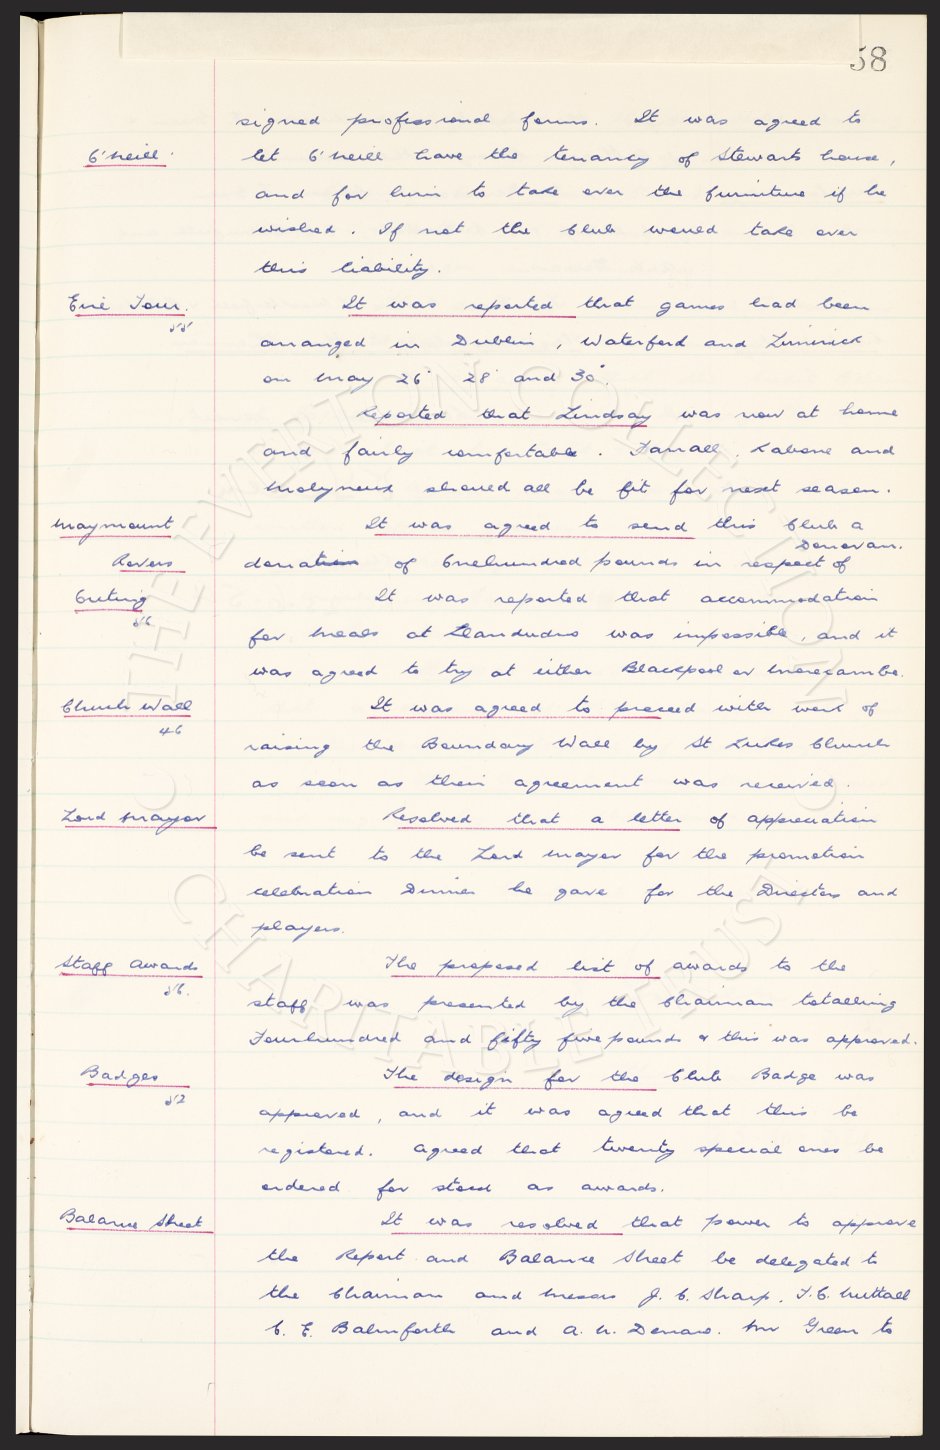 58
signed professional forms. It was agreed to
O'Neill.
let O'Neill have the tenancy of Stewarts house,
and for him to take over the furniture if he
wished. If not the Club would take over
this liability.
Eire Tour.
55
It was reported that games had been
arranged in Dublin, Waterford and Limerick
on May 26 28 and 30.
Reported that Lindsay was now at home
and fairly comfortable. Farrall. Labone and
Molyneux should all be fit for next season.
Maymount
Rovers
It was agreed to send this Club a
Donovan.
donation of Onehundred pounds in respect of
Outing
56
It was reported that accommodation
for meals at Llandudno was impossible, and it
was agreed to try at either Blackpool or Morecambe.
Church Wall
46
It was agreed to proceed with work of
raising the Boundary Wall by St Lukes Church
as soon as their agreement was received.
Lord Mayor
Resolved that a letter of appreciation
be sent to the Lord Mayor for the promotion
celebration Dinner he gave for the Directors and
players.
Staff Awards
56.
The proposed list of awards to the
staff was presented by the Chairman totalling
Fourhundred and fifty five pounds & this was approved.
Badges
52
The design for the Club Badge was
approved, and it was agreed that this be
registered. Agreed that twenty special ones be
ordered for stock as awards.
Balance Sheet
It was resolved that power to approve
the Report and Balance Sheet be delegated to
the Chairman and Messrs J. C. Sharp. T.C. Nuttall
C. E. Balmforth and A. W. Denaro. Mr Green to
© THE EVERTON COLLECTION
CHARITABLE TRUST